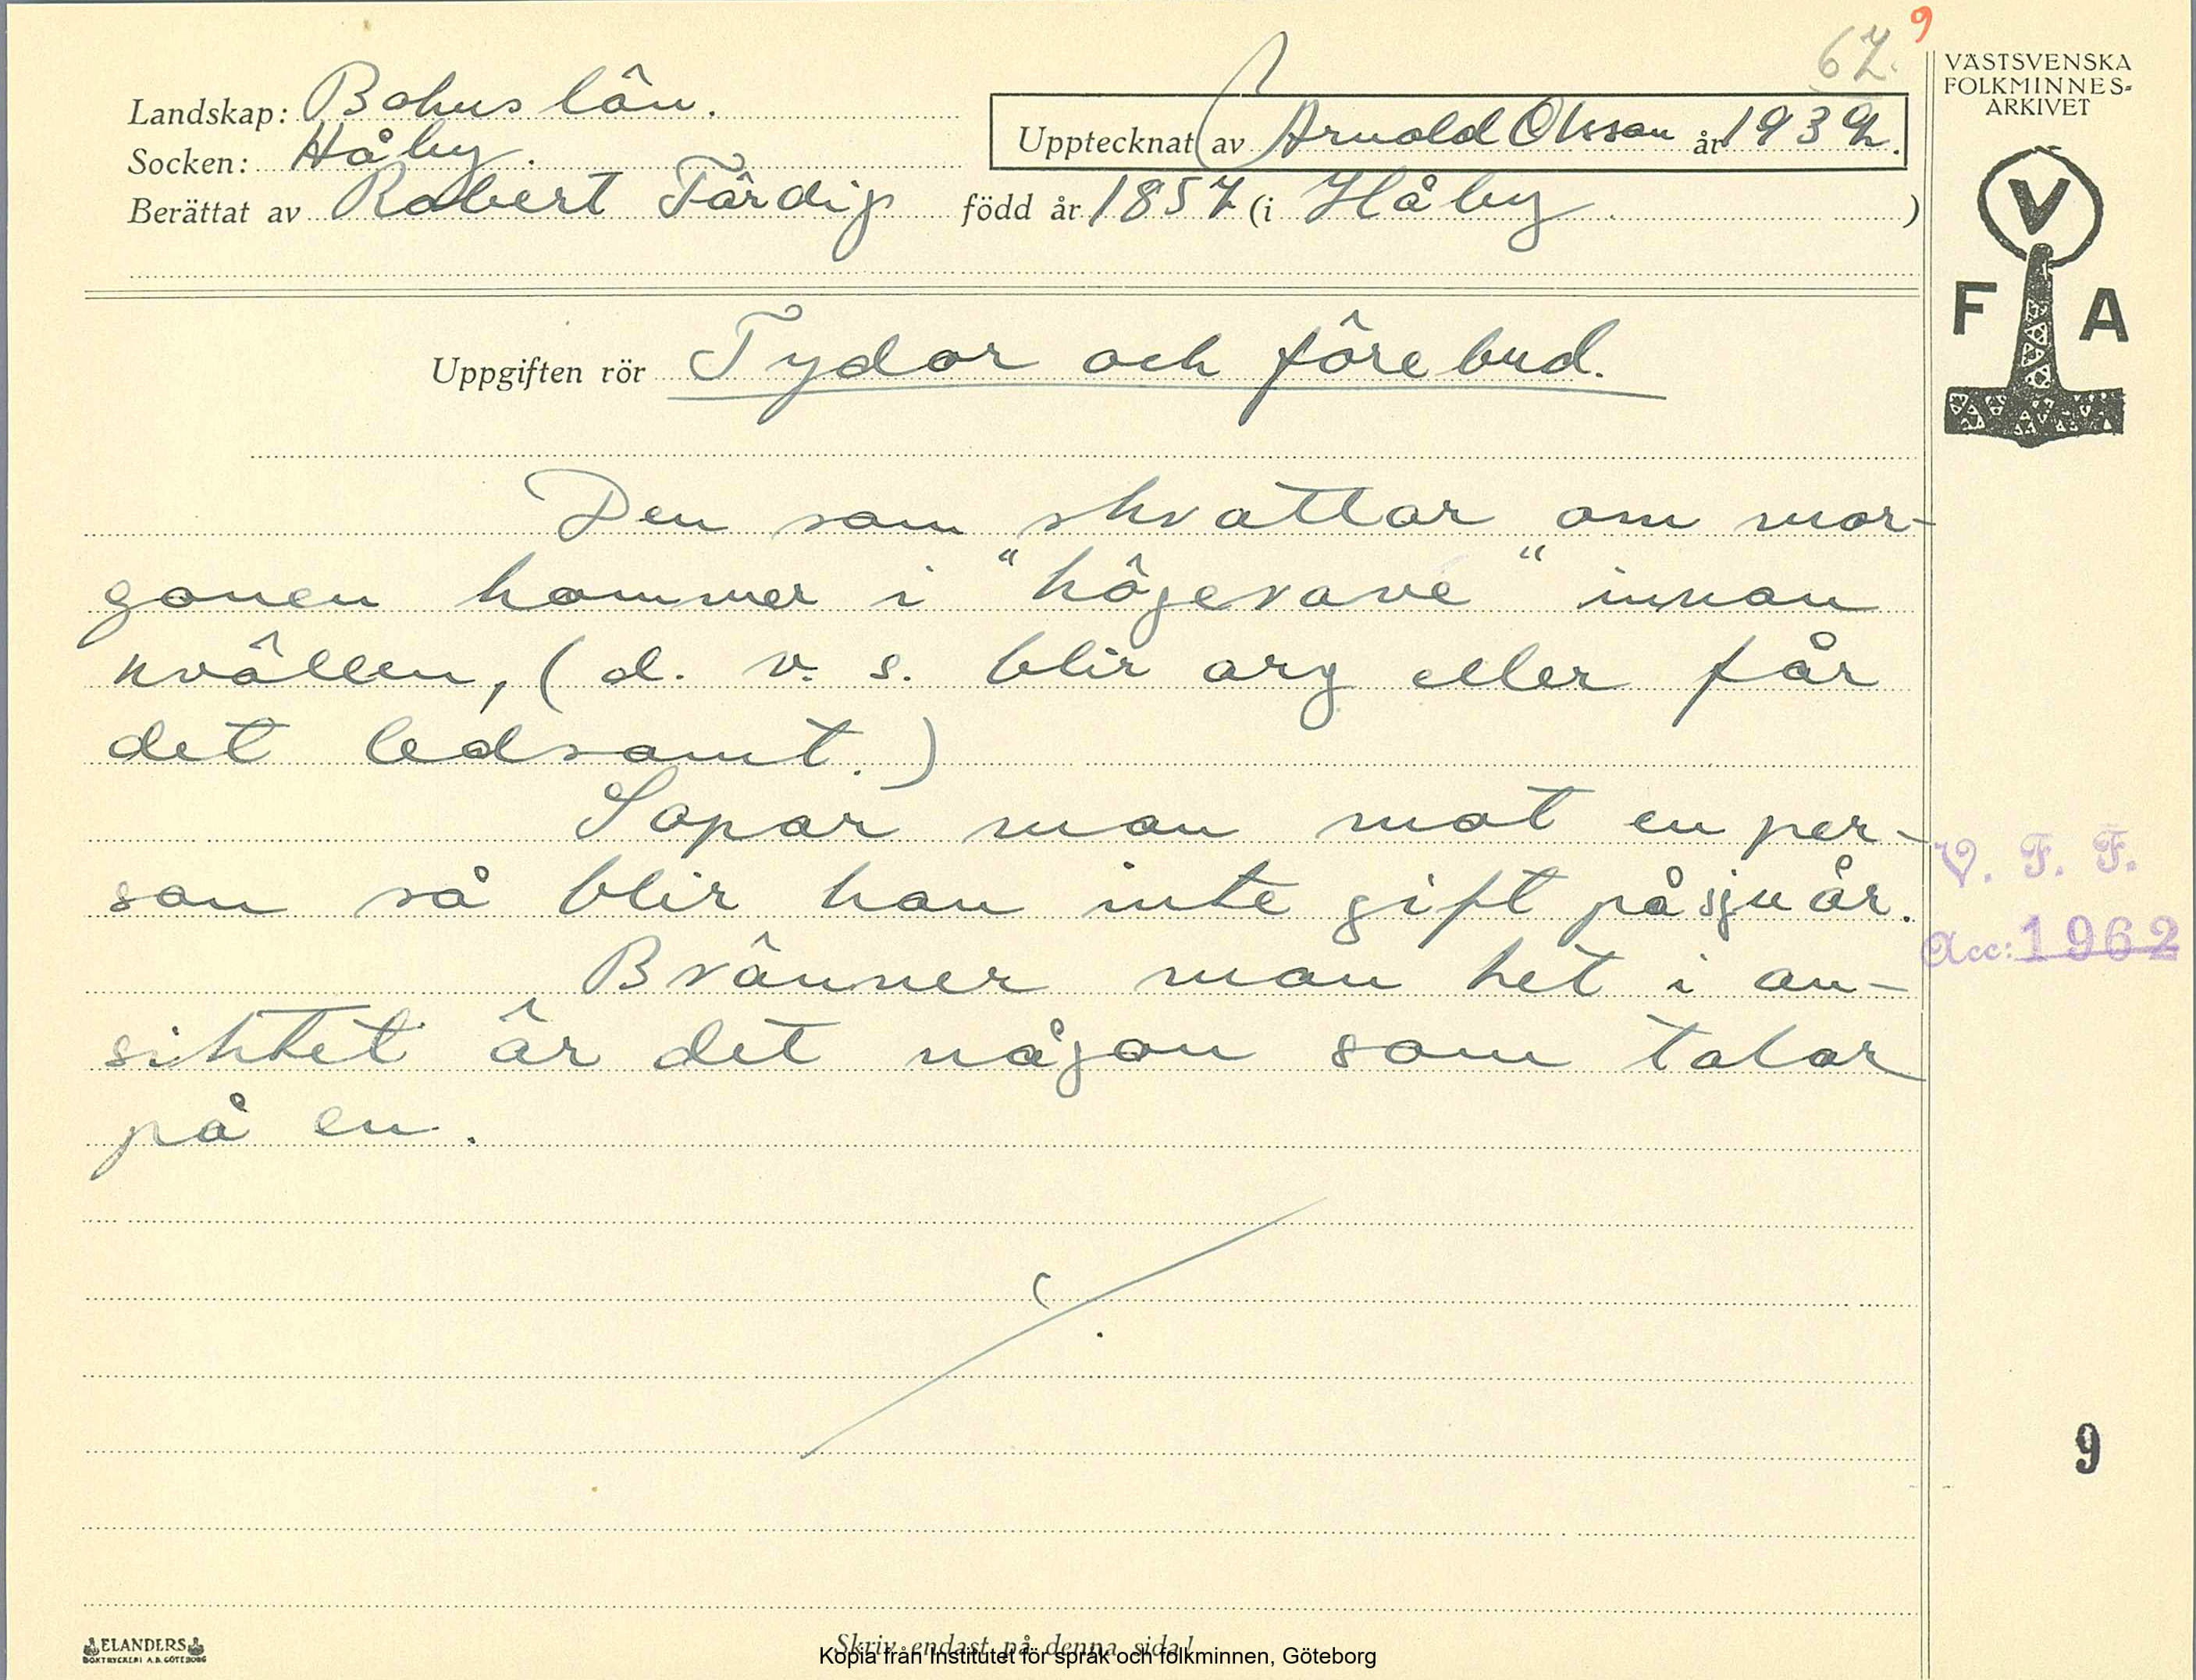 67. 9
VÄSTSVENSKA
FOLKMINNES-
ARKIVET
Landskap: Bohuslän.
Upptecknat av Arnold Olsson år 1932.
Socken: Håby.
Berättat av Robert Färdig född år 1857 (i Håby.)
V
F A
Uppgiften rör Tydor och förebud.
Den som skrattar om mor-
gonen kommer i "högerave" innan
kvällen, (d. v. s. blir arg eller får
det ledsamt.)
Sopar man mot en per-
son så blir han inte gift på sju år.
V. F. F.
Acc: 1962
Bränner man het i an-
siktet är det någon som talar
på en.
9
ELANDERS
BOKTRYCKERI A.B. GÖTEBORG
Skriv endast på denna sida!
Kopia från Institutet för språk och folkminnen, Göteborg